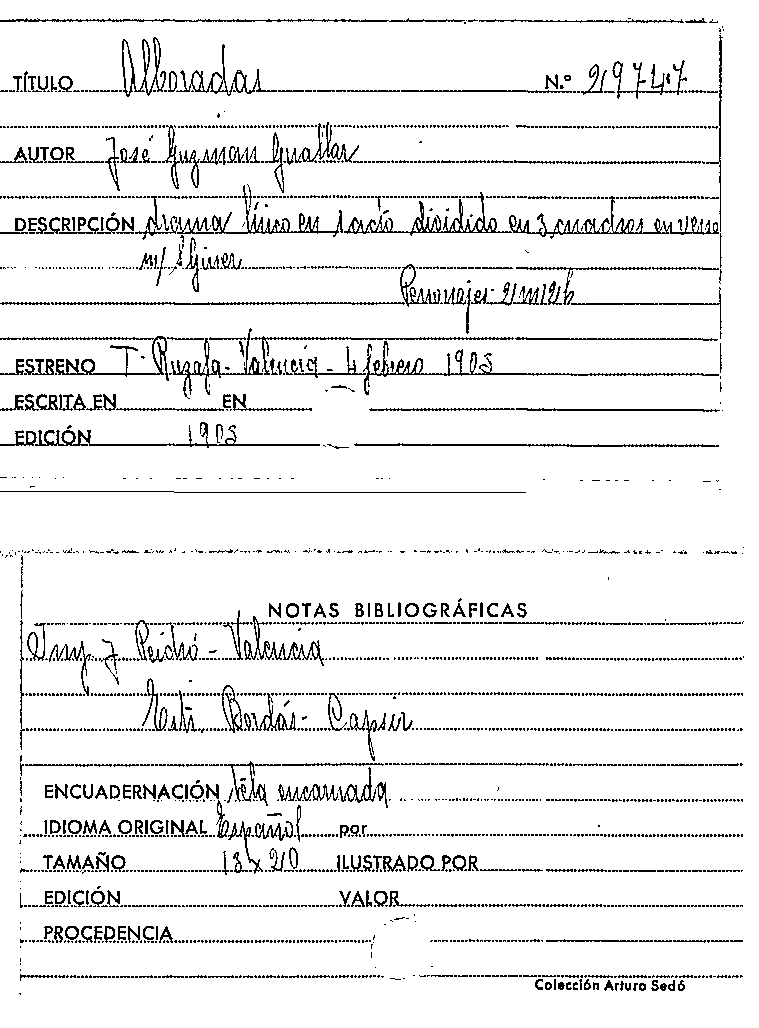 TÍTULO Alboradas N.º 29747
AUTOR José Guzmán Guallar
DESCRIPCIÓN drama lírico en 1 acto dividido en 3 cuadros en verso
m/ S Giner
Personajes 2/m 12/h
ESTRENO T. Ruzafa - Valencia - 4 febrero 1903
ESCRITA EN EN
EDICIÓN 1903
NOTAS BIBLIOGRÁFICAS
Imp. J Peidró - Valencia
Bordás - Capsir
ENCUADERNACIÓN tela encarnada
IDIOMA ORIGINAL Español por
TAMAÑO 13 x 20 ILUSTRADO POR
EDICIÓN VALOR
PROCEDENCIA
Colección Arturo Sedó